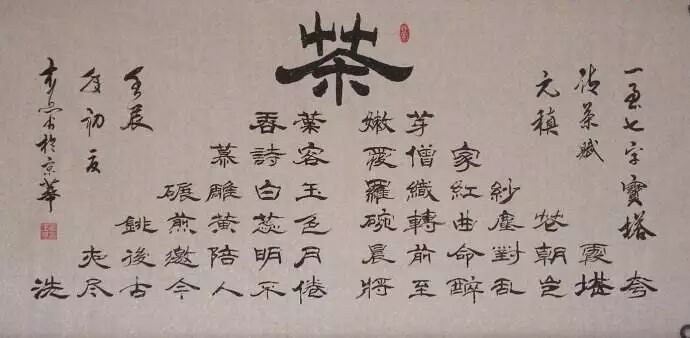 茶
一至七字寶塔
詩茶賦
元稹
香葉 嫩芽
慕詩客 愛僧家
碾雕白玉 羅織紅紗
銚煎黃蕊色 碗轉曲塵花
夜後邀陪明月 晨前命對朝霞
洗尽古今人不倦 將至醉亂豈堪夸
壬辰
年初夏
書於京華